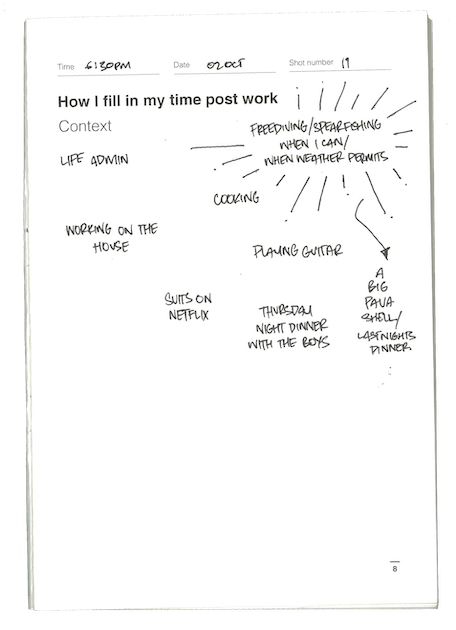 Time 6:30PM Date 02 OCT Shot number 19
How I fill in my time post work
Context
FREEDIVING/SPEARFISHING
WHEN I CAN/
WHEN WEATHER PERMITS
LIFE ADMIN
COOKING
WORKING ON THE
HOUSE
PLAYING GUITAR
A
BIG
PAUA
SHELL/
LAST NIGHTS
DINNER
SUITS ON
NETFLIX
THURSDAY
NIGHT DINNER
WITH THE BOYS
8